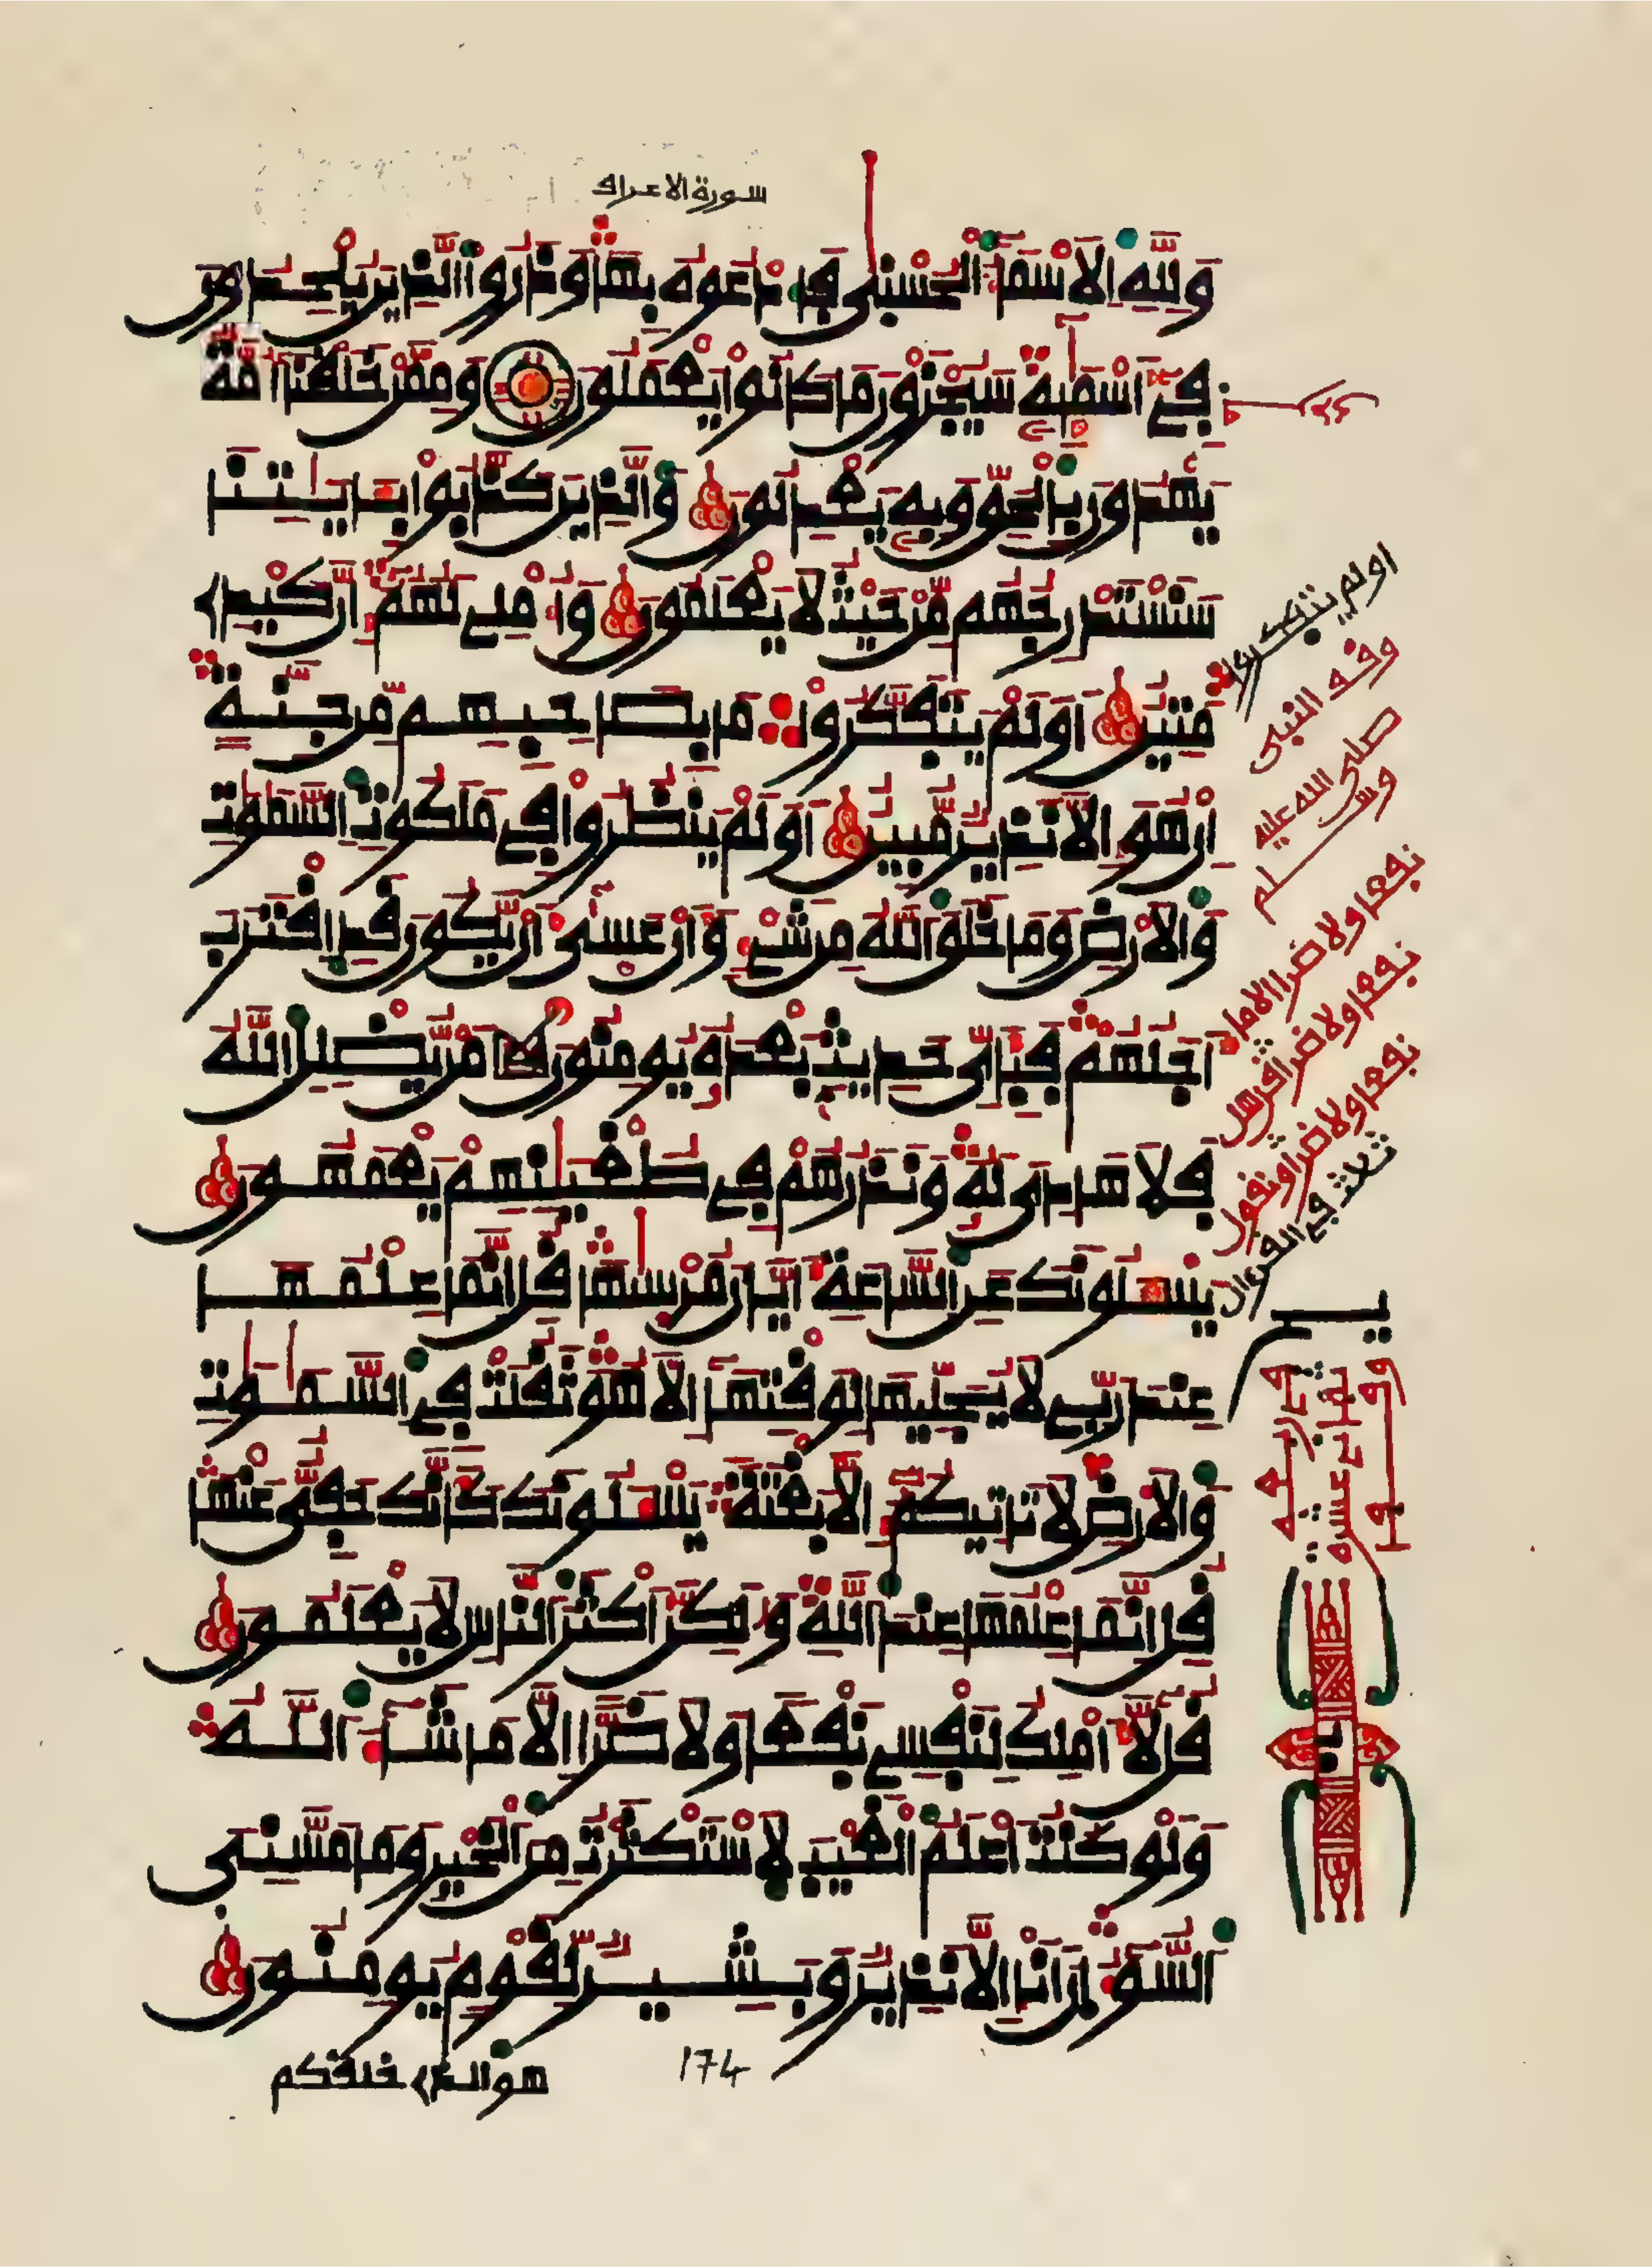 سورة الاعراف
وَلِلهِ الاَسْمَآءُ الْحُسْنٜي فَادْعُوهُ بِهَا وَذَرُوا الذِينَ يُلْحِدُونَ
فِےٓ أَسْمَٰٓئِهِۦ سَيُجْزَوْنَ مَا كَانُوا يَعْمَلُونَ وَمِمَّنْ خَلَقْنَآ أُمَّةٌ
يَهْدُونَ بِالْحَقِّ وَبِهِۦ يَعْدِلُونَ وَالذِينَ كَذَّبُوا بِـَٔايَٰتِنَا
سَنَسْتَدْرِجُهُم مِّنْ حَيْثُ لَا يَعْلَمُونَ وَأُمْلِے لَهُمُۥٓ إِنَّ كَيْدِے
مَتِينٌ أَوَلَمْ يَتَفَكَّرُوا مَا بِصَاحِبِهِم مِّن جِنَّةٍ
إِنْ هُوَ إِلَّا نَذِيرٌ مُّبِينٌ أَوَلَمْ يَنظُرُوا فِے مَلَكُوتِ السَّمَٰوَٰتِ
وَالاَرْضِ وَمَا خَلَقَ اللَّهُ مِن شَےْءٍ وَأَنْ عَسٜىٓ أَنْ يَّكُونَ قَدِ اِقْتَرَبَ
أَجَلُهُمْ فَبِأَيِّ حَدِيثٍ بَعْدَهُۥ يُومِنُونَ مَنْ يُّضْلِلِ اللَّهُ
فَلَا هَادِيَ لَهُۥ وَنَذَرُهُمْ فِے طُغْيَٰنِهِمْ يَعْمَهُونَ
يَسْـَٔلُونَكَ عَنِ السَّاعَةِ أَيَّانَ مُرْسٜىٰهَا قُلِ اِنَّمَا عِلْمُهَا
عِندَ رَبِّے لَا يُجَلِّيهَا لِوَقْتِهَآ إِلَّا هُوَ ثَقُلَتْ فِے السَّمَٰوَٰتِ
وَالاَرْضِ لَا تَاتِيكُمُۥٓ إِلَّا بَغْتَةً يَسْـَٔلُونَكَ كَأَنَّكَ حَفِيٌّ عَنْهَا
قُلِ اِنَّمَا عِلْمُهَا عِندَ اللَّهِ وَلَٰكِنَّ أَكْثَرَ النَّاسِ لَا يَعْلَمُونَ
قُل لَّآ أَمْلِكُ لِنَفْسِے نَفْعًا وَلَا ضَرًّا اِلَّا مَا شَآءَ اللَّهُ
وَلَوْ كُنتُ أَعْلَمُ الْغَيْبَ لَاسْتَكْثَرْتُ مِنَ الْخَيْرِ وَمَا مَسَّنِيَ
السُّوٓءُ إِنَ اَنَا إِلَّا نَذِيرٌ وَبَشِيرٌ لِّقَوْمٍ يُومِنُونَ
هو الذے خلقكم
174
اولم يتفكروا
وقف النبي
صلى الله عليه
وسلم
نفعا ولا ضرا الا ما
نفعا ولا ضرا قل هل
نفعا ولا ضرا ونقول
ثلاث في القرءان
ثماني عشرة